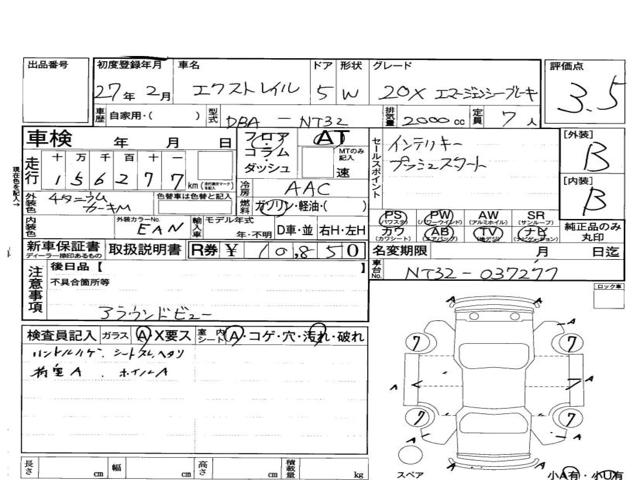 出品番号 初度登録年月 車名 ドア 形状 グレード 評価点
27年 2月 エクストレイル 5 W 20X エマージェンシーブレーキ 3.5
車歴 自家用・( ) 型式 DBA-NT32 排気量 2000cc 定員 7人
車検 年 月 日 フロア・コラム・ダッシュ AT セールスポイント インテリキー [外装] B
MTのみ記入 速 プッシュスタート
走行 十万千百十一
156277km
現在色を記入→ 外装色 チタニウムカーキM 色替車は色替と記入 冷房 AAC [内装] B
燃料 ガソリン・軽油・( )
内装色 外装カラーNo. EAN 輸入車 モデル年式 年・不明 D車・並 右H・左H
PS (パワステ) PW (パワーウインド) AW (アルミホイル) SR (サンルーフ) 純正品のみ丸印
カワ (カワシート) AB (エアバック) TV (地デジ) ナビ (ナビゲーション)
新車保証書 ディーラー捺印あるもの 取扱説明書 R券 ¥10,850 名変期限 月 日迄
注意事項 後日品【 】 車台No. NT32-037277
不具合箇所等 ロック車
アラウンドビュー
検査員記入 ガラス A・X要ス 室内シート A・コゲ・穴・汚れ・破れ
ハンドルハゲ、シートスレ、ヘタリ
荷室A、ホイルA
7 7
A A A
7 7
A
長さ cm 幅 cm 高さ cm 積載量 kg
スペア 小A有・小U有